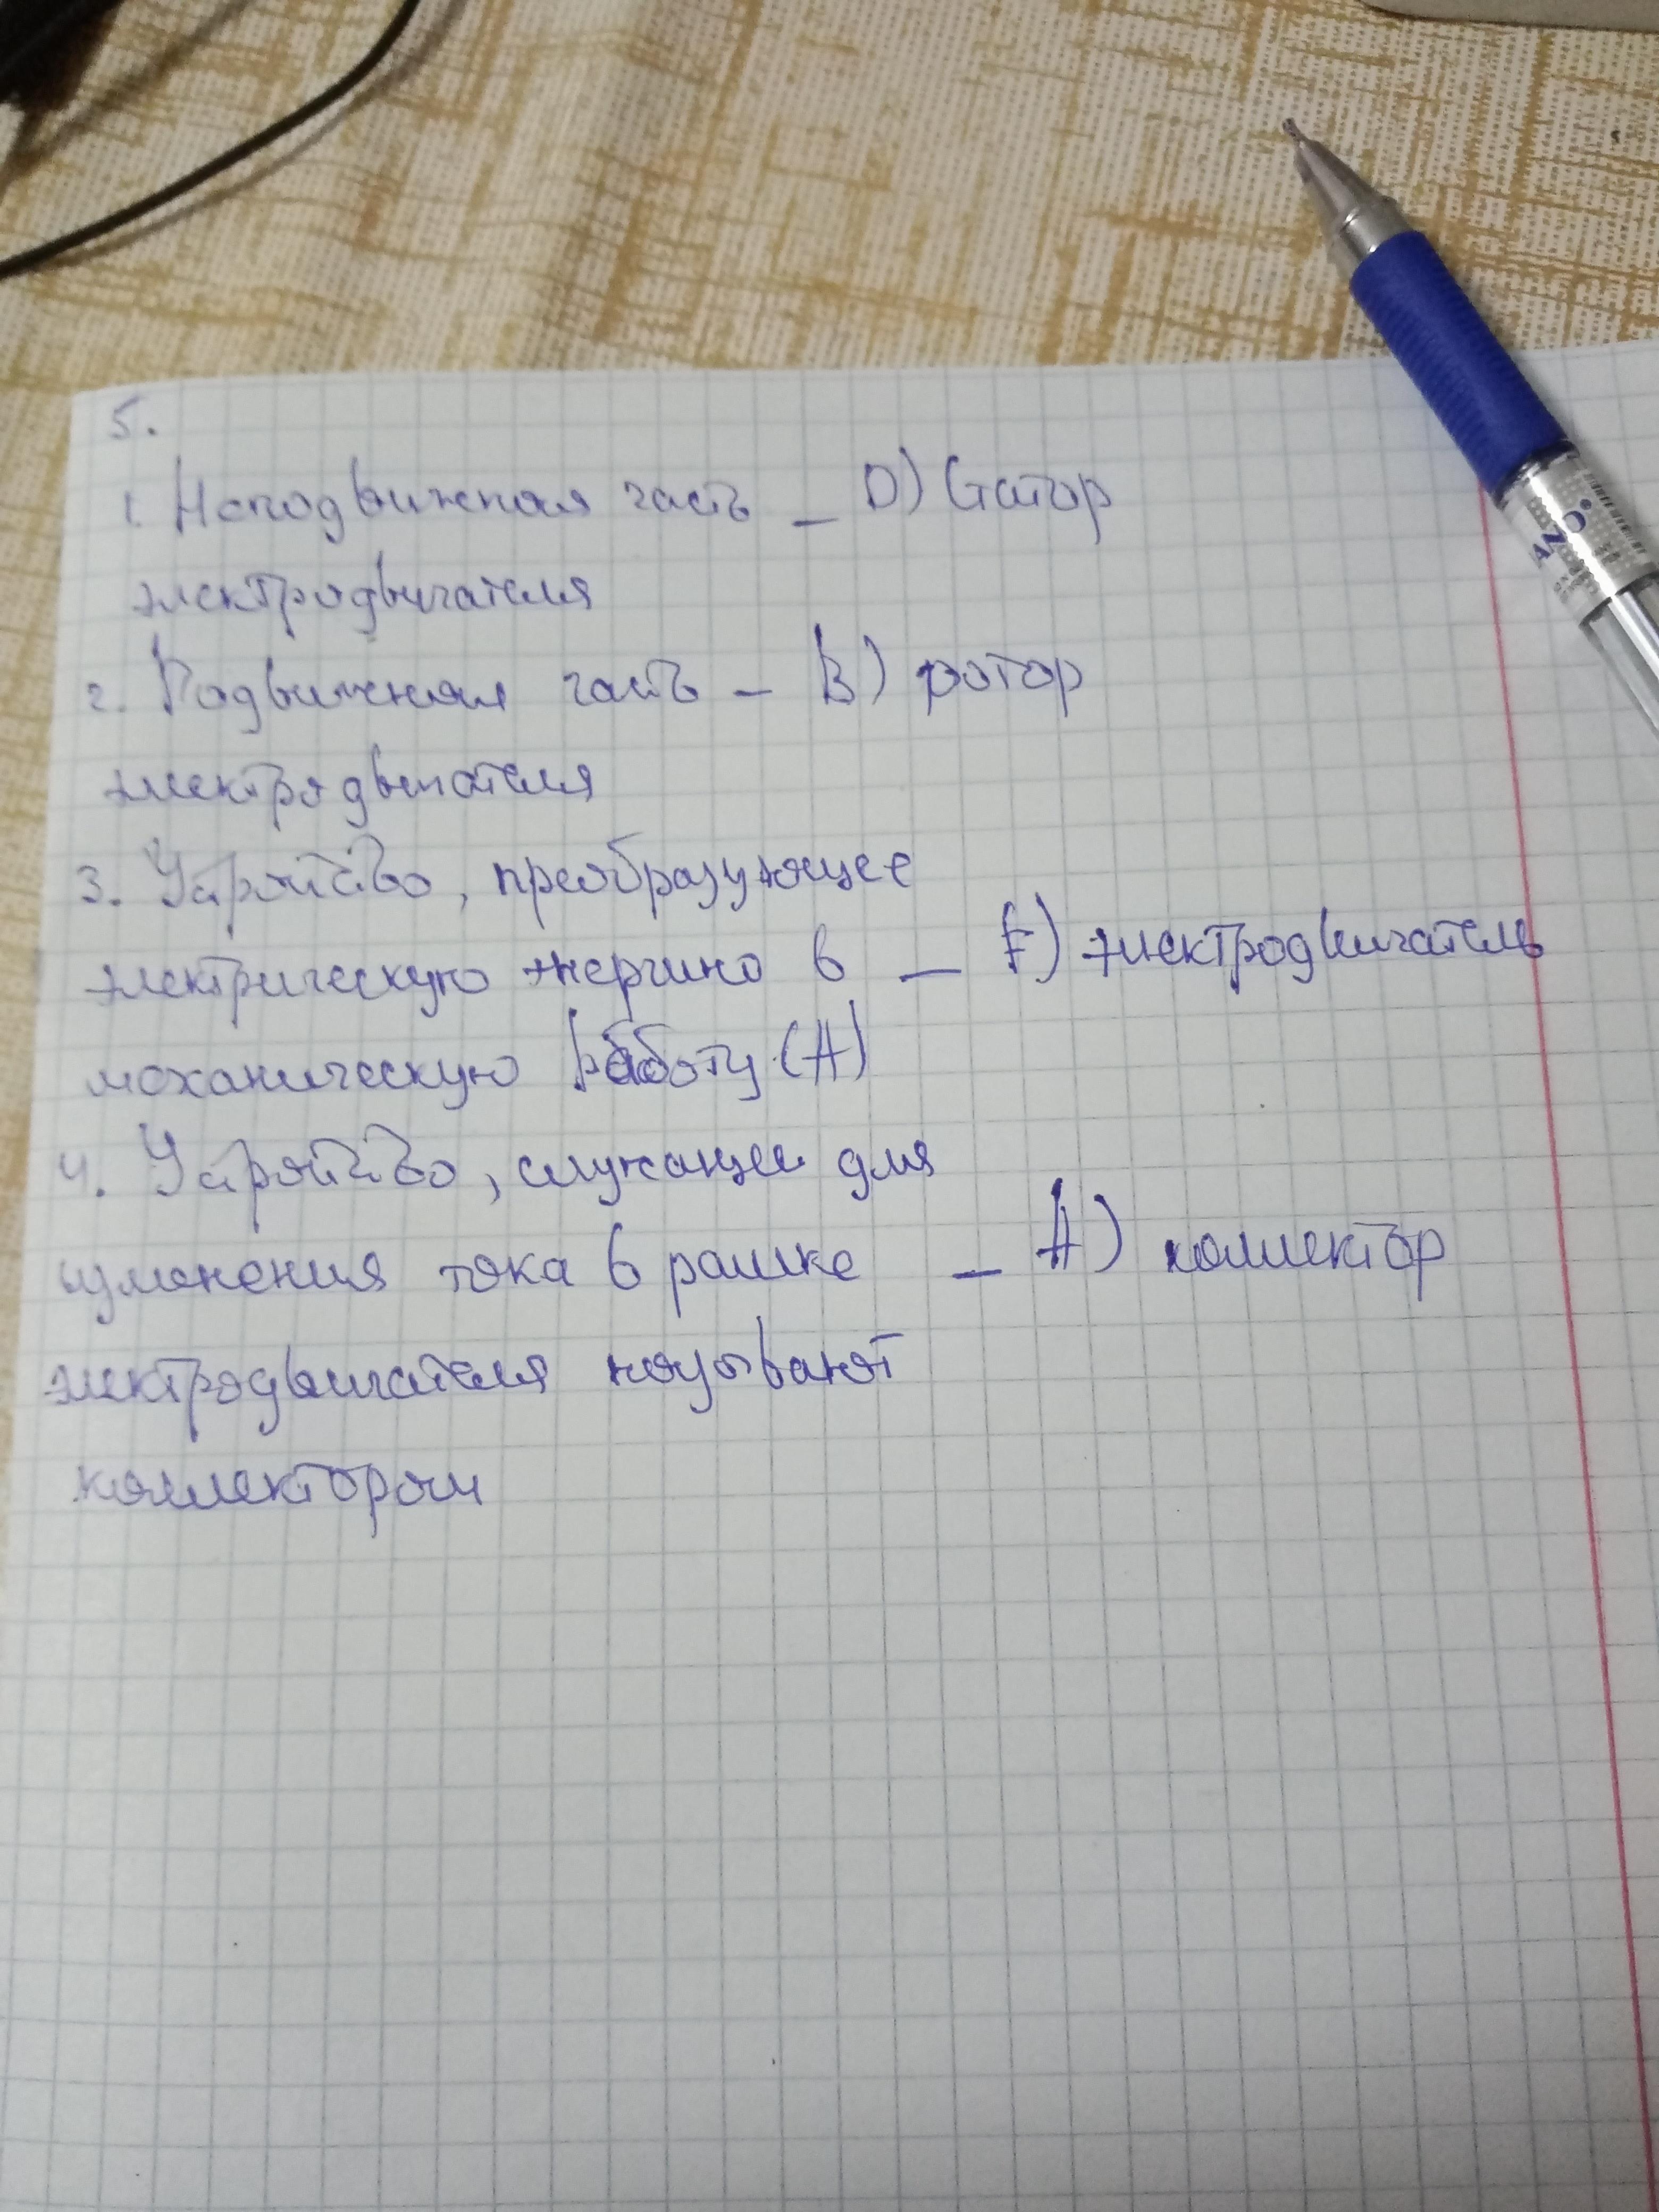 5.
1. Неподвижная часть – D) Статор
электродвигателя
2. Подвижная часть – B) ротор
электродвигателя
3. Устройство, преобразующее
электрическую энергию в – F) электродвигатель
механическую работу (A)
4. Устройство, служащее для
изменения тока в рамке – A) коллектор
электродвигателя называют
коллектором
AZO